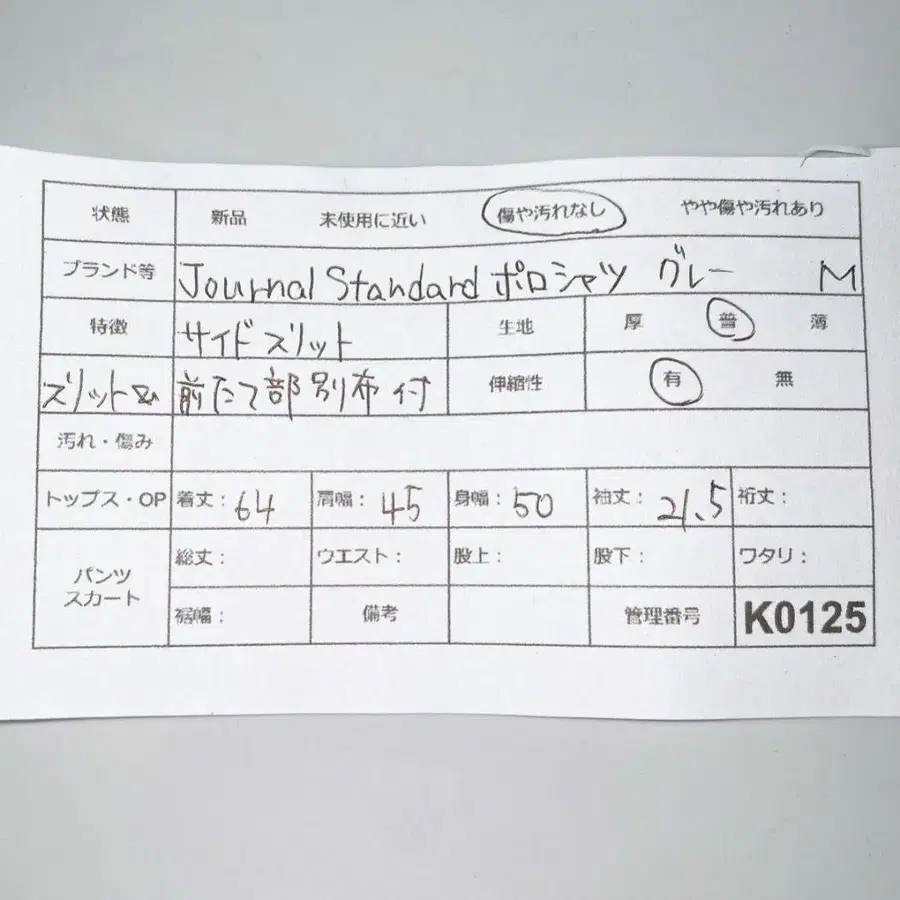 状態 新品 未使用に近い 傷や汚れなし やや傷や汚れあり
ブランド等 Journal Standard ポロシャツ グレー M
特徴 サイドスリット 生地 厚 普 薄
スリット& 前たて部別布付 伸縮性 有 無
汚れ・傷み
トップス・OP 着丈：64 肩幅：45 身幅：50 袖丈：21.5 裄丈：
パンツ スカート 総丈： ウエスト： 股上： 股下： ワタリ：
裾幅： 備考 管理番号 K0125